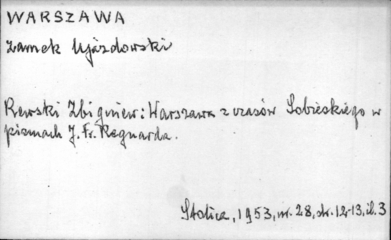 WARSZAWA
Zamek Ujazdowski
Rewski Zbigniew: Warszawa z czasów Sobieskiego w
pismach J. Fr. Regnarda.
Stolica, 1953, nr. 28, str. 12-13, il. 3